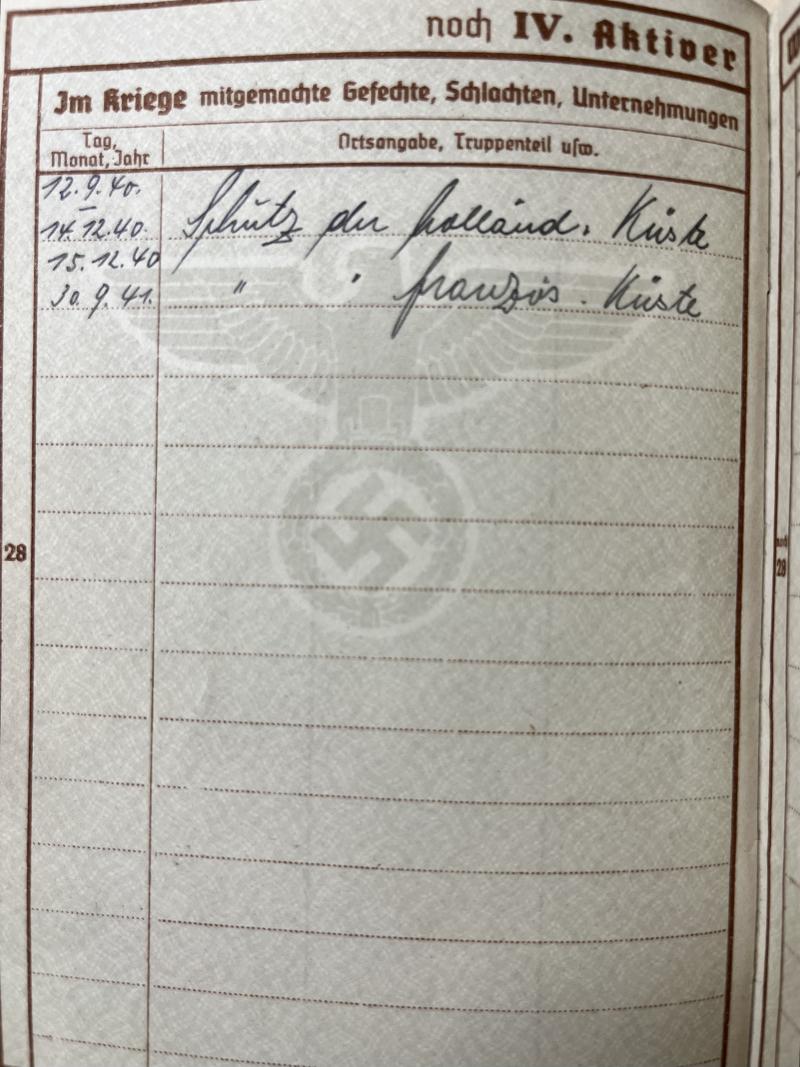 noch IV. Aktiver
Im Kriege mitgemachte Gefechte, Schlachten, Unternehmungen
Tag, Monat, Jahr
Ortsangabe, Truppenteil usw.
12.9.40.
–
14.12.40. Schutz der holländ. Küste
15.12.40
30.9.41. " " französ. Küste
28
noch
28